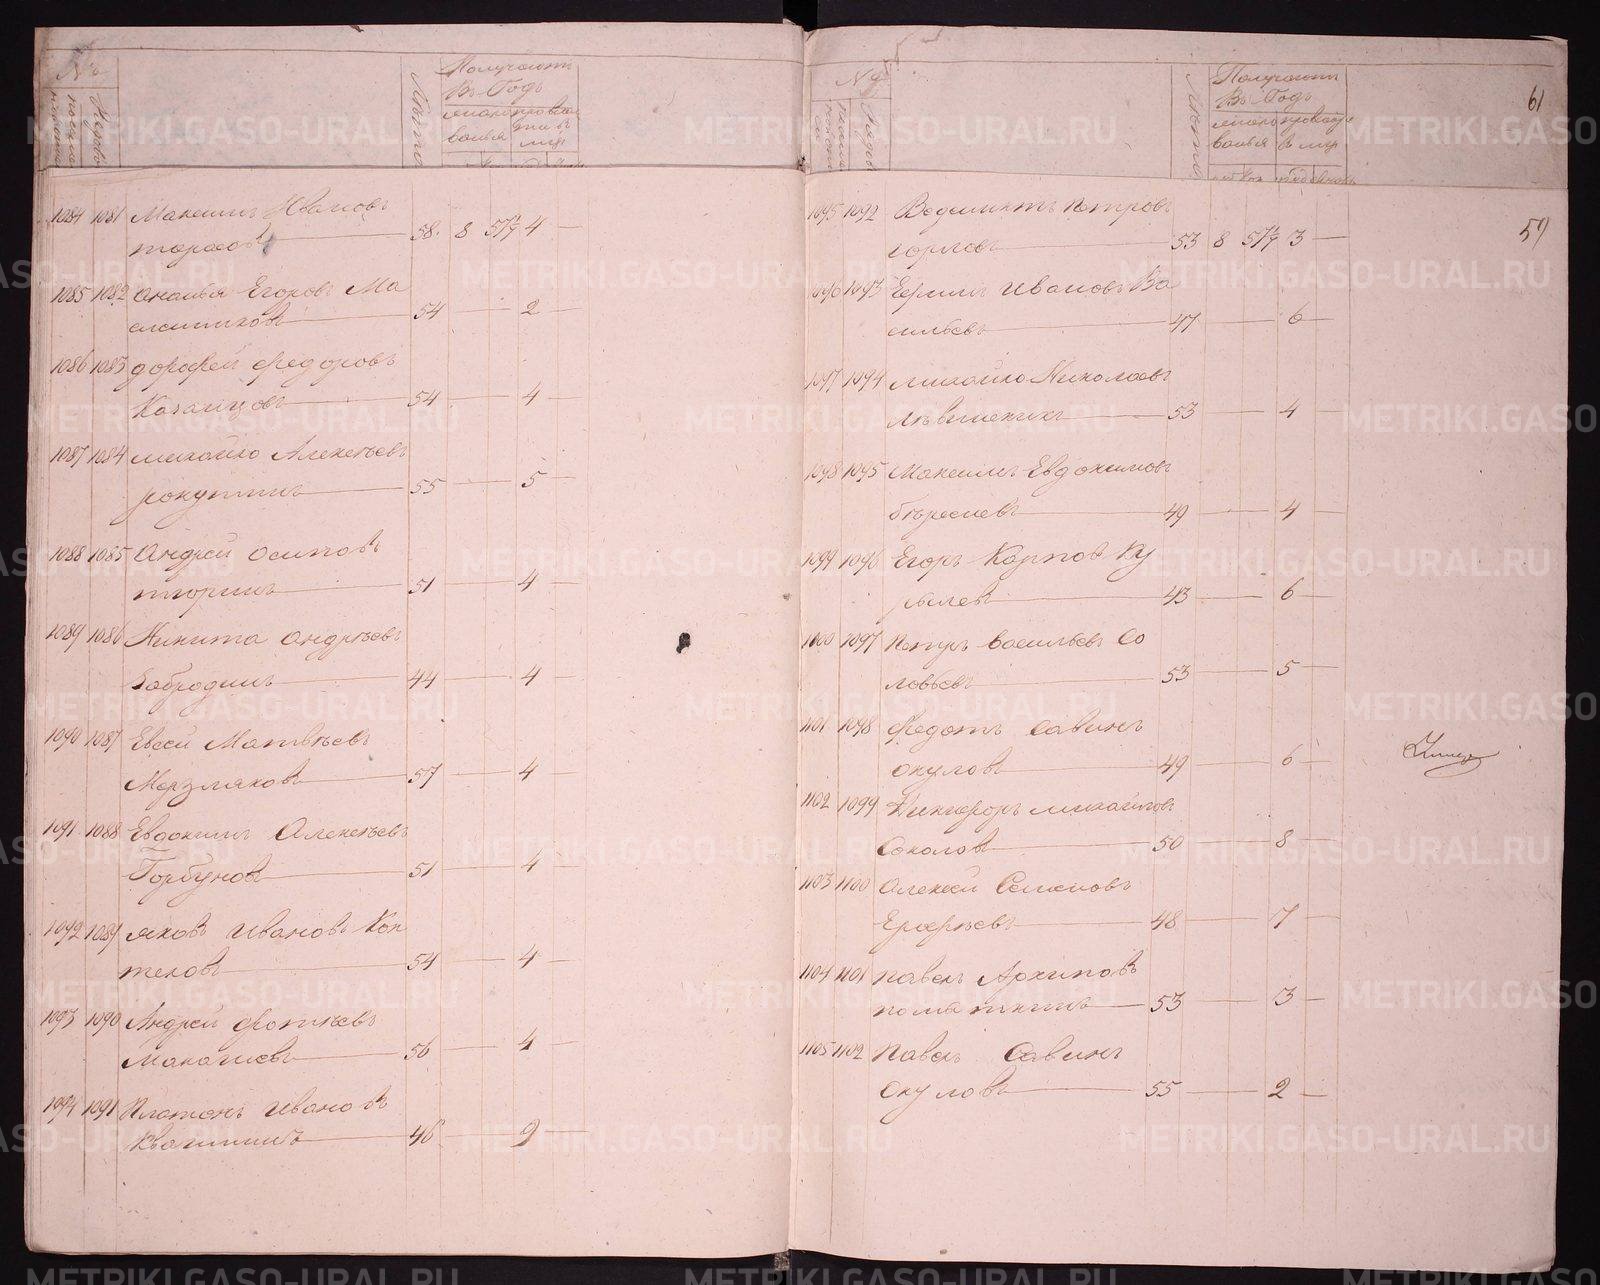 №
Лѣта
Получаютъ
Въ Годъ
1084 1081 Максимъ Ивановъ
тарасовъ 58. 8 57 1/7 4
1085 1082 Ананья Егоровъ Ма
сленниковъ 54 2
1086 1083 дорофей федоровъ
Казанцовъ 54 4
1087 1084 михайло Алексѣевъ
55 5
1088 1085 Андрей осиповъ
51 4
1089 1086 Никита андрѣевъ
Забродинъ 44 4
1090 1087 Евсей Матвѣевъ
Мерзляковъ 57 4
1091 1088 Евдокимъ Алексѣевъ
Горбуновъ 51 4
1092 1089 яковъ Ивановъ Коп
теловъ 54 4
1093 1090 Андрей фотѣевъ
56 4
1094 1091 Платонъ Ивановъ
Квашнинъ 46 2
№
Лѣта
Получаютъ
Въ Годъ
61
59
1095 1092 Ведениктъ петровъ
горловъ 53 8 57 1/7 3
1096 1093 Ермилъ Ивановъ Ва
сильевъ 47 6
1097 1094 михайло Николаевъ
53 4
1098 1095 Максимъ Евдокимовъ
49 4
1099 1096 Егоръ Карповъ Ку
рылевъ 43 6
1100 1097 Петръ васильевъ Со
ловьевъ 53 5
1101 1098 Федотъ Савинъ
окуловъ 49 6
1102 1099 Никифоръ михайловъ
Соколовъ 50 8
1103 1100 Алексей Семеновъ
Ерофѣевъ 48 7
1104 1101 павелъ Архиповъ
53 3
1105 1102 Павелъ Савинъ
Окуловъ 55 2
METRIKI.GASO-URAL.RU